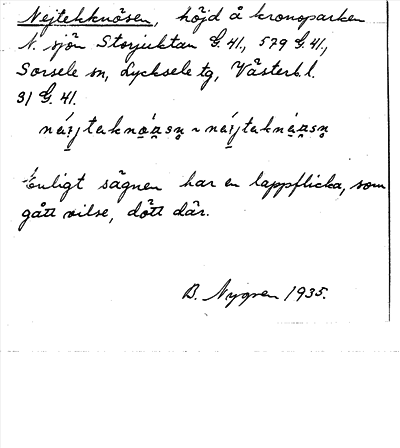 Nejtekknösen, höjd å kronoparken
N. sjön Storjuktan G.41, 579 G.41,
Sorsele sn, Lycksele tg, Västerb. l.
31 G. 41.
Enligt sägnen har en lappflicka, som
gått vilse, dött där.
B. Nygren 1935.